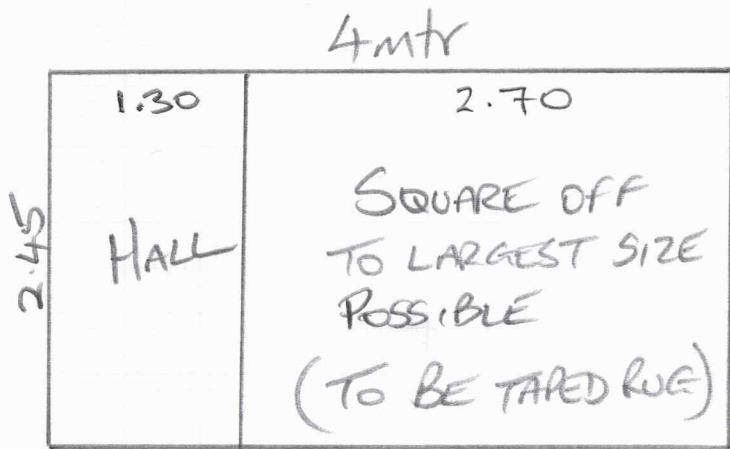 4mtr
1.30 2.70
2.45
HALL
SQUARE OFF
TO LARGEST SIZE
POSSIBLE
(TO BE TAPED RUG)